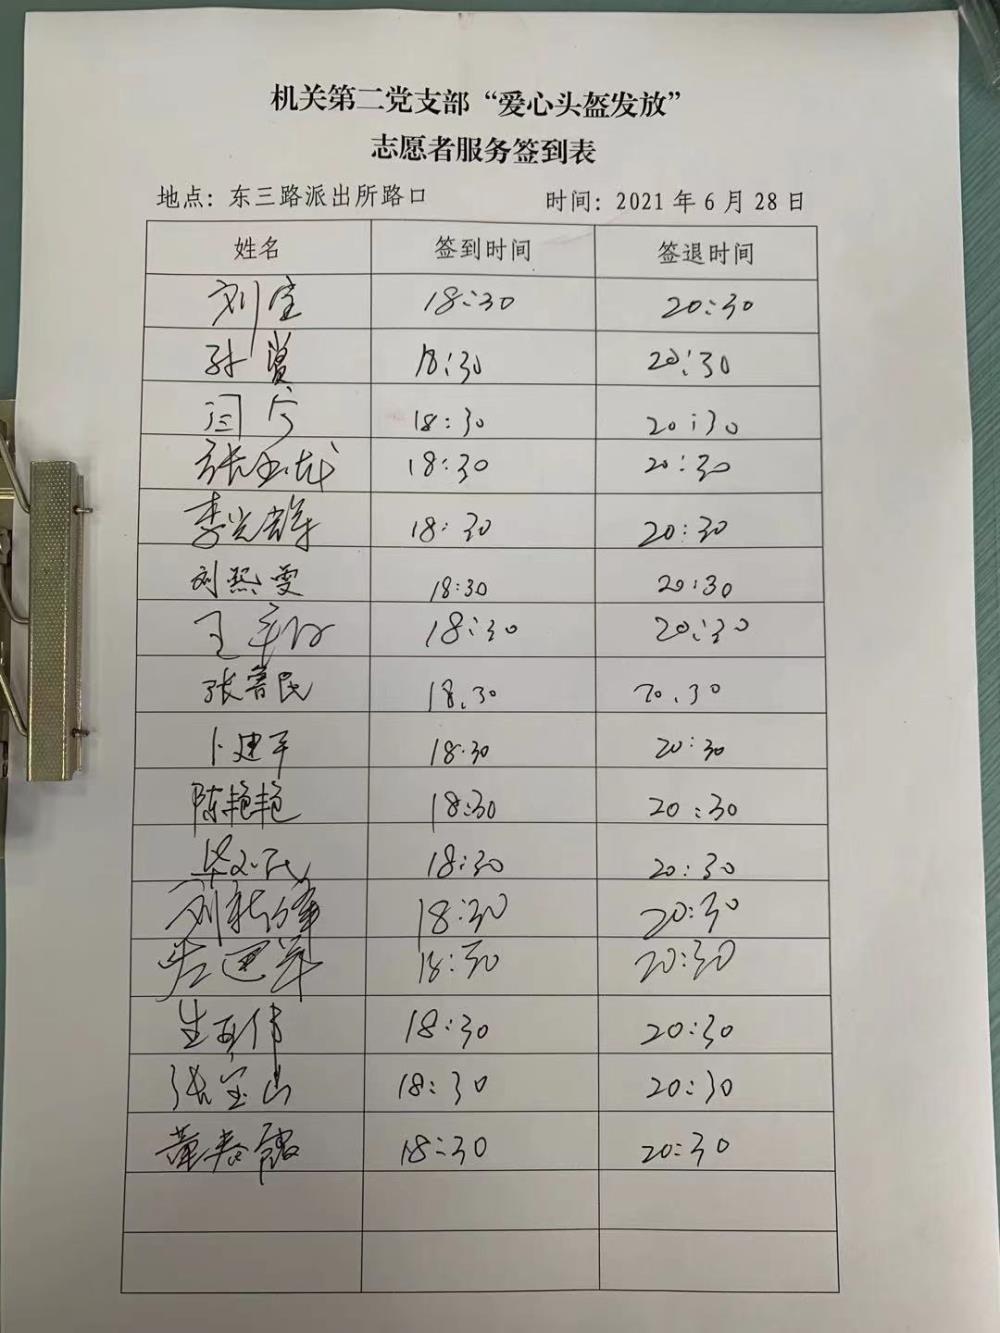 机关第二党支部“爱心头盔发放”
志愿者服务签到表
地点：东三路派出所路口 时间：2021年6月28日
姓名 签到时间 签退时间
刘 18:30 20:30
孙 18:30 20:30
闫 18:30 20:30
张 18:30 20:30
李光辉 18:30 20:30
刘熙雯 18:30 20:30
王 18:30 20:30
张鲁民 18.30 20.30
卜建平 18:30 20:30
陈艳艳 18:30 20:30
毕 民 18:30 20:30
刘 18:30 20:30
18:30 20:30
生 伟 18:30 20:30
张宝山 18:30 20:30
董春霞 18:30 20:30